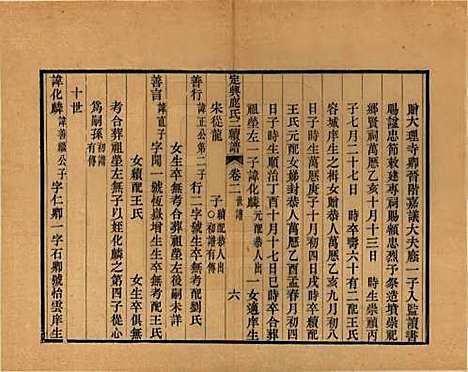 贈大理寺卿晉階嘉議大夫廕一子入監讀書
賜諡忠節敕建專祠賜額忠烈予祭造墳崇祀
鄉賢祠萬曆乙亥十月十三日 時生崇禎丙
子七月二十七日 時卒壽六十有二配王氏
容城庠生之楫女贈恭人萬曆
時生萬曆庚子十月初四日戌時卒續配
王氏元配女娣封恭人萬曆乙酉孟春月初四
日 時生順治丁酉十月十七日巳時卒合葬
祖塋左一子諱化麟元配恭人出一女適庠生
朱從龍 子續配恭人出〇初譜有傳
定興鹿氏二續譜 卷二 世譜 六
善行諱正公第二子行二字號生卒無考配劉氏
女生卒無考合葬祖塋左後嗣未詳
善言諱直子字聞一號恆嶽增生生卒無考配王氏
女續配王氏 女生卒俱無
考合葬祖塋左無子以姪化麟之第四子從心
爲嗣孫初譜有傳
十世
諱化麟諱善繼公子字仁卿一字石卿號怡雲庠生